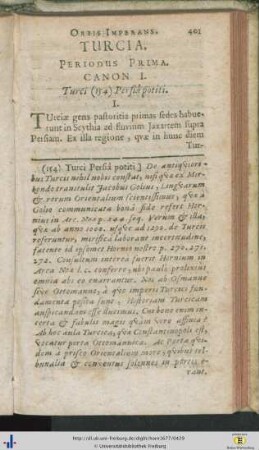 ORBIS IMPERANS. 401
TURCIA.
PERIODUS PRIMA.
CANON I.
Turci (154) Persiâ potiti.
I.
TUrciæ gens pastoritia primas sedes habue-
runt in Scythia ad fluvium Jaxartem supra
Persiam. Ex illa regione, quæ in hunc diem
Tur-
(154) Turci Persiâ potiti ] De antiquiori-
bus Turcis nihil nobis constat, nisi quæ ex Mir-
kondo transtulit Jacobus Golius, Linguarum
& rerum Orientalium scientissimus, quæ à
Golio communicata bonâ fide refert Hor-
nius in Arc. Noæ p. seq. Verum & illa,
quæ ab anno 1000. usque ad 1250. de Turcis
referuntur, mirificâ laborant incertitudine,
facente id ipsum Hornio nostro p. 270. 271.
272. Consultum interea fuerit Hornium in
Arca Noæ l. c. conferre, ubi paulò prolixius
omnia ab eo enarrantur. Nos ab Osmanno
sive Ottomanno, à quo imperii Turcici fun-
damenta posita sunt, Historiam Turcicam
auspicandam esse duximus. Cur bono enim in-
certa & fabulis magis quàm vero affinia?
Ab hac aula Turcica, quæ Constantinopoli est,
vocatur porta Ottomannica. At Porta qui-
dem à prisco Orientalium more, quibus tri-
bunalia & conventus solennes in portis e-
rant,
http://dl.ub.uni-freiburg.de/diglit/horn1677/0439
© Universitätsbibliothek Freiburg